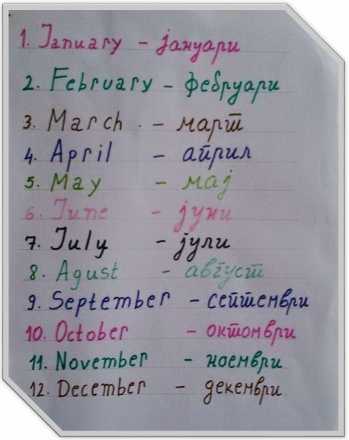 1. January - јануари
2. February - фебруари
3. March - март
4. April - април
5. May - мај
6. June - јуни
7. July - јули
8. Agust - август
9. September - септември
10. October - октомври
11. November - ноември
12. December - декември